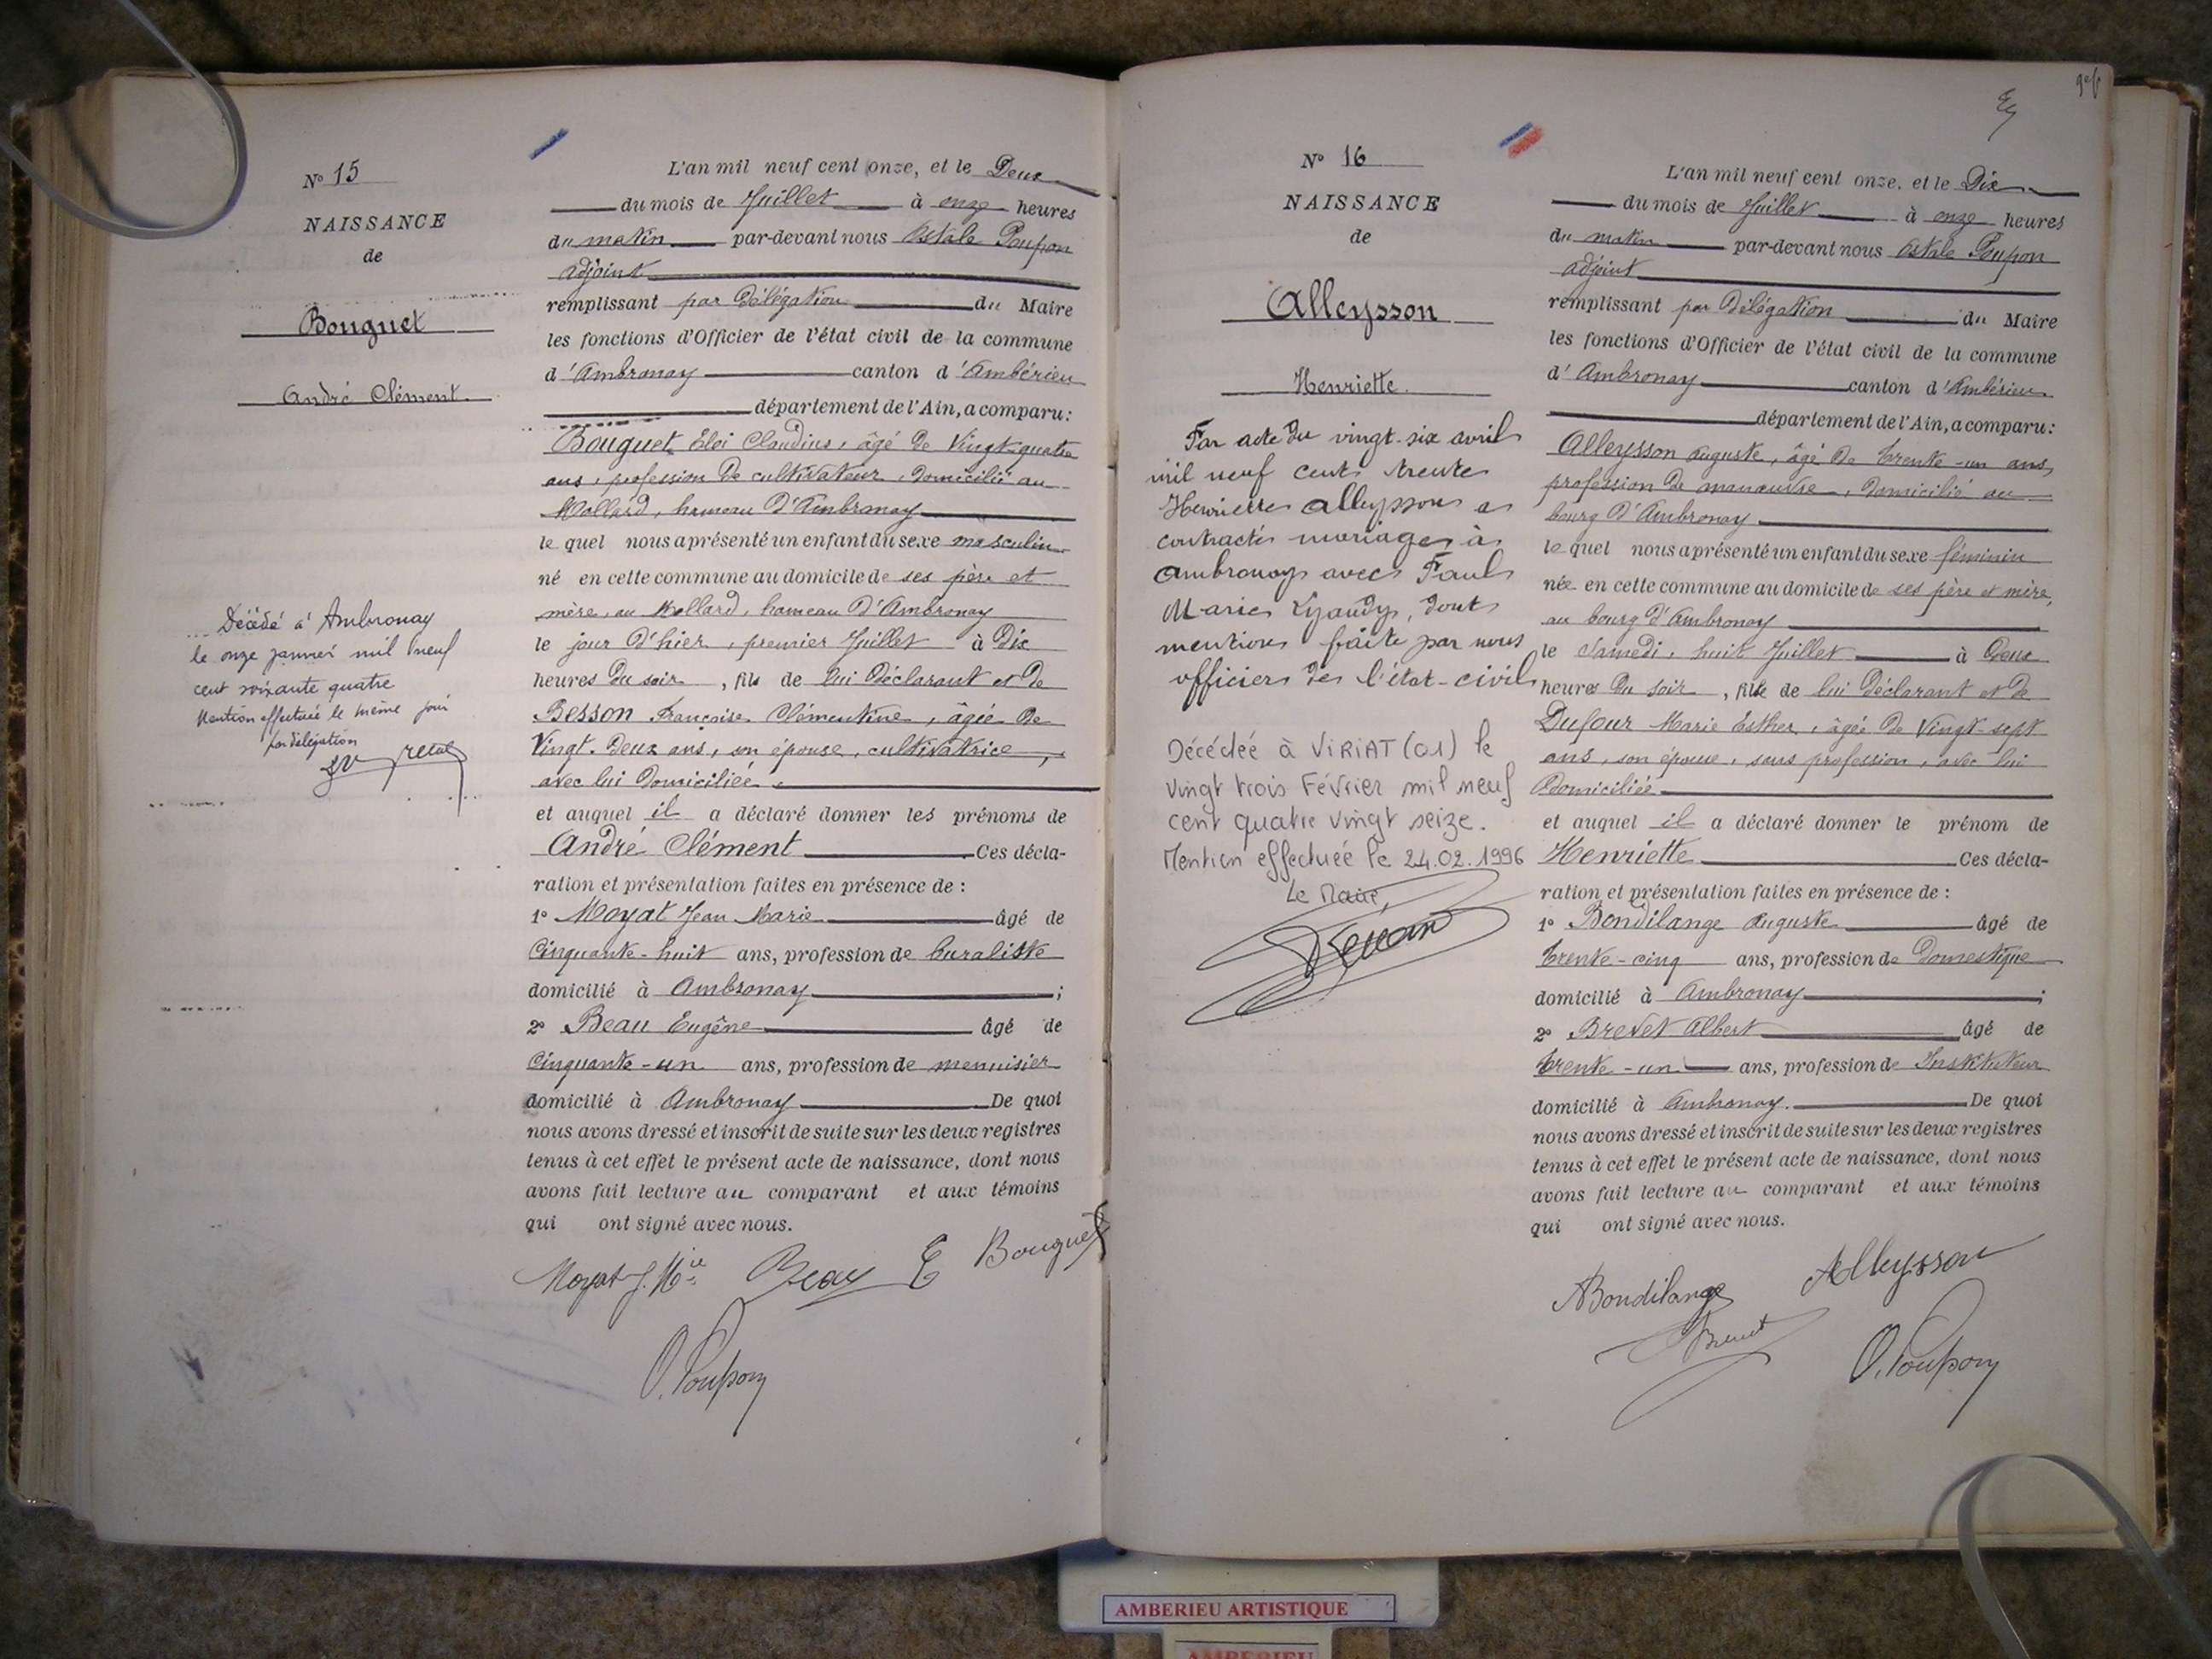 Nº 15
NAISSANCE
de
Bouguet
André Clément.
Décédé à Ambronay
le onze janvier mil neuf
cent soixante quatre
Mention effectuée le même jour
par délégation
L'an mil neuf cent onze, et le Deux
du mois de Juillet à onze heures
du matin par-devant nous Octale Poupon
adjoint
remplissant par Délégation du Maire
les fonctions d'Officier de l'état civil de la commune
d'Ambronay canton d'Ambérieu
département de l'Ain, a comparu:
Bouguet Eloi Claudius, âgé de Vingt-quatre
ans, profession de cultivateur, domicilié au
Mollard, hameau d'Ambronay
le quel nous a présenté un enfant du sexe masculin
né en cette commune au domicile de ses père et
mère, au Mollard, hameau d'Ambronay
le jour d'hier, premier Juillet à Dix
heures du soir, fils de lui Déclarant et de
Besson Françoise Clémentine, âgée de
Vingt-deux ans, son épouse, cultivatrice,
avec lui domiciliée.
et auquel il a déclaré donner les prénoms de
André Clément Ces décla-
ration et présentation faites en présence de :
1º Moyat Jean Marie âgé de
Cinquante-huit ans, profession de buraliste
domicilié à Ambronay ;
2º Beau Eugène âgé de
Cinquante-un ans, profession de menuisier
domicilié à Ambronay De quoi
nous avons dressé et inscrit de suite sur les deux registres
tenus à cet effet le présent acte de naissance, dont nous
avons fait lecture au comparant et aux témoins
qui ont signé avec nous.
Moyat J. Mie Beau E Bouguet
O. Poupon
Nº 16
NAISSANCE
de
Alleysson
Henriette.
Par acte du vingt-six avril
mil neuf cent trente
Henriette Alleysson a
contracté mariage à
Ambronay avec Paul
Marie dont
mention faite par nous
officier de l'état-civil
Décédée à VIRIAT (01) le
vingt trois Février mil neuf
cent quatre vingt seize.
Mention effectuée le 24.02.1996
Le Maire,
L'an mil neuf cent onze, et le Dix
du mois de Juillet à onze heures
du matin par-devant nous Octale Poupon
adjoint
remplissant par Délégation du Maire
les fonctions d'Officier de l'état civil de la commune
d'Ambronay canton d'Ambérieu
département de l'Ain, a comparu:
Alleysson Auguste, âgé de trente-un ans,
profession de manœuvre, domicilié au
bourg d'Ambronay
le quel nous a présenté un enfant du sexe féminin
née en cette commune au domicile de ses père et mère,
au bourg d'Ambronay
le Samedi, huit Juillet à Deux
heures du soir, fille de lui Déclarant et de
Dufour Marie Esther, âgée de Vingt-sept
ans, son épouse, sans profession, avec lui
Domiciliée
et auquel il a déclaré donner le prénom de
Henriette Ces décla-
ration et présentation faites en présence de :
1º Bondilange Auguste âgé de
trente-cinq ans, profession de Domestique
domicilié à Ambronay ;
2º Brevet Albert âgé de
trente-un ans, profession de Instituteur
domicilié à Ambronay. De quoi
nous avons dressé et inscrit de suite sur les deux registres
tenus à cet effet le présent acte de naissance, dont nous
avons fait lecture au comparant et aux témoins
qui ont signé avec nous.
ABondilange Alleysson
Brevet O. Poupon
AMBERIEU ARTISTIQUE
AMBERIEU